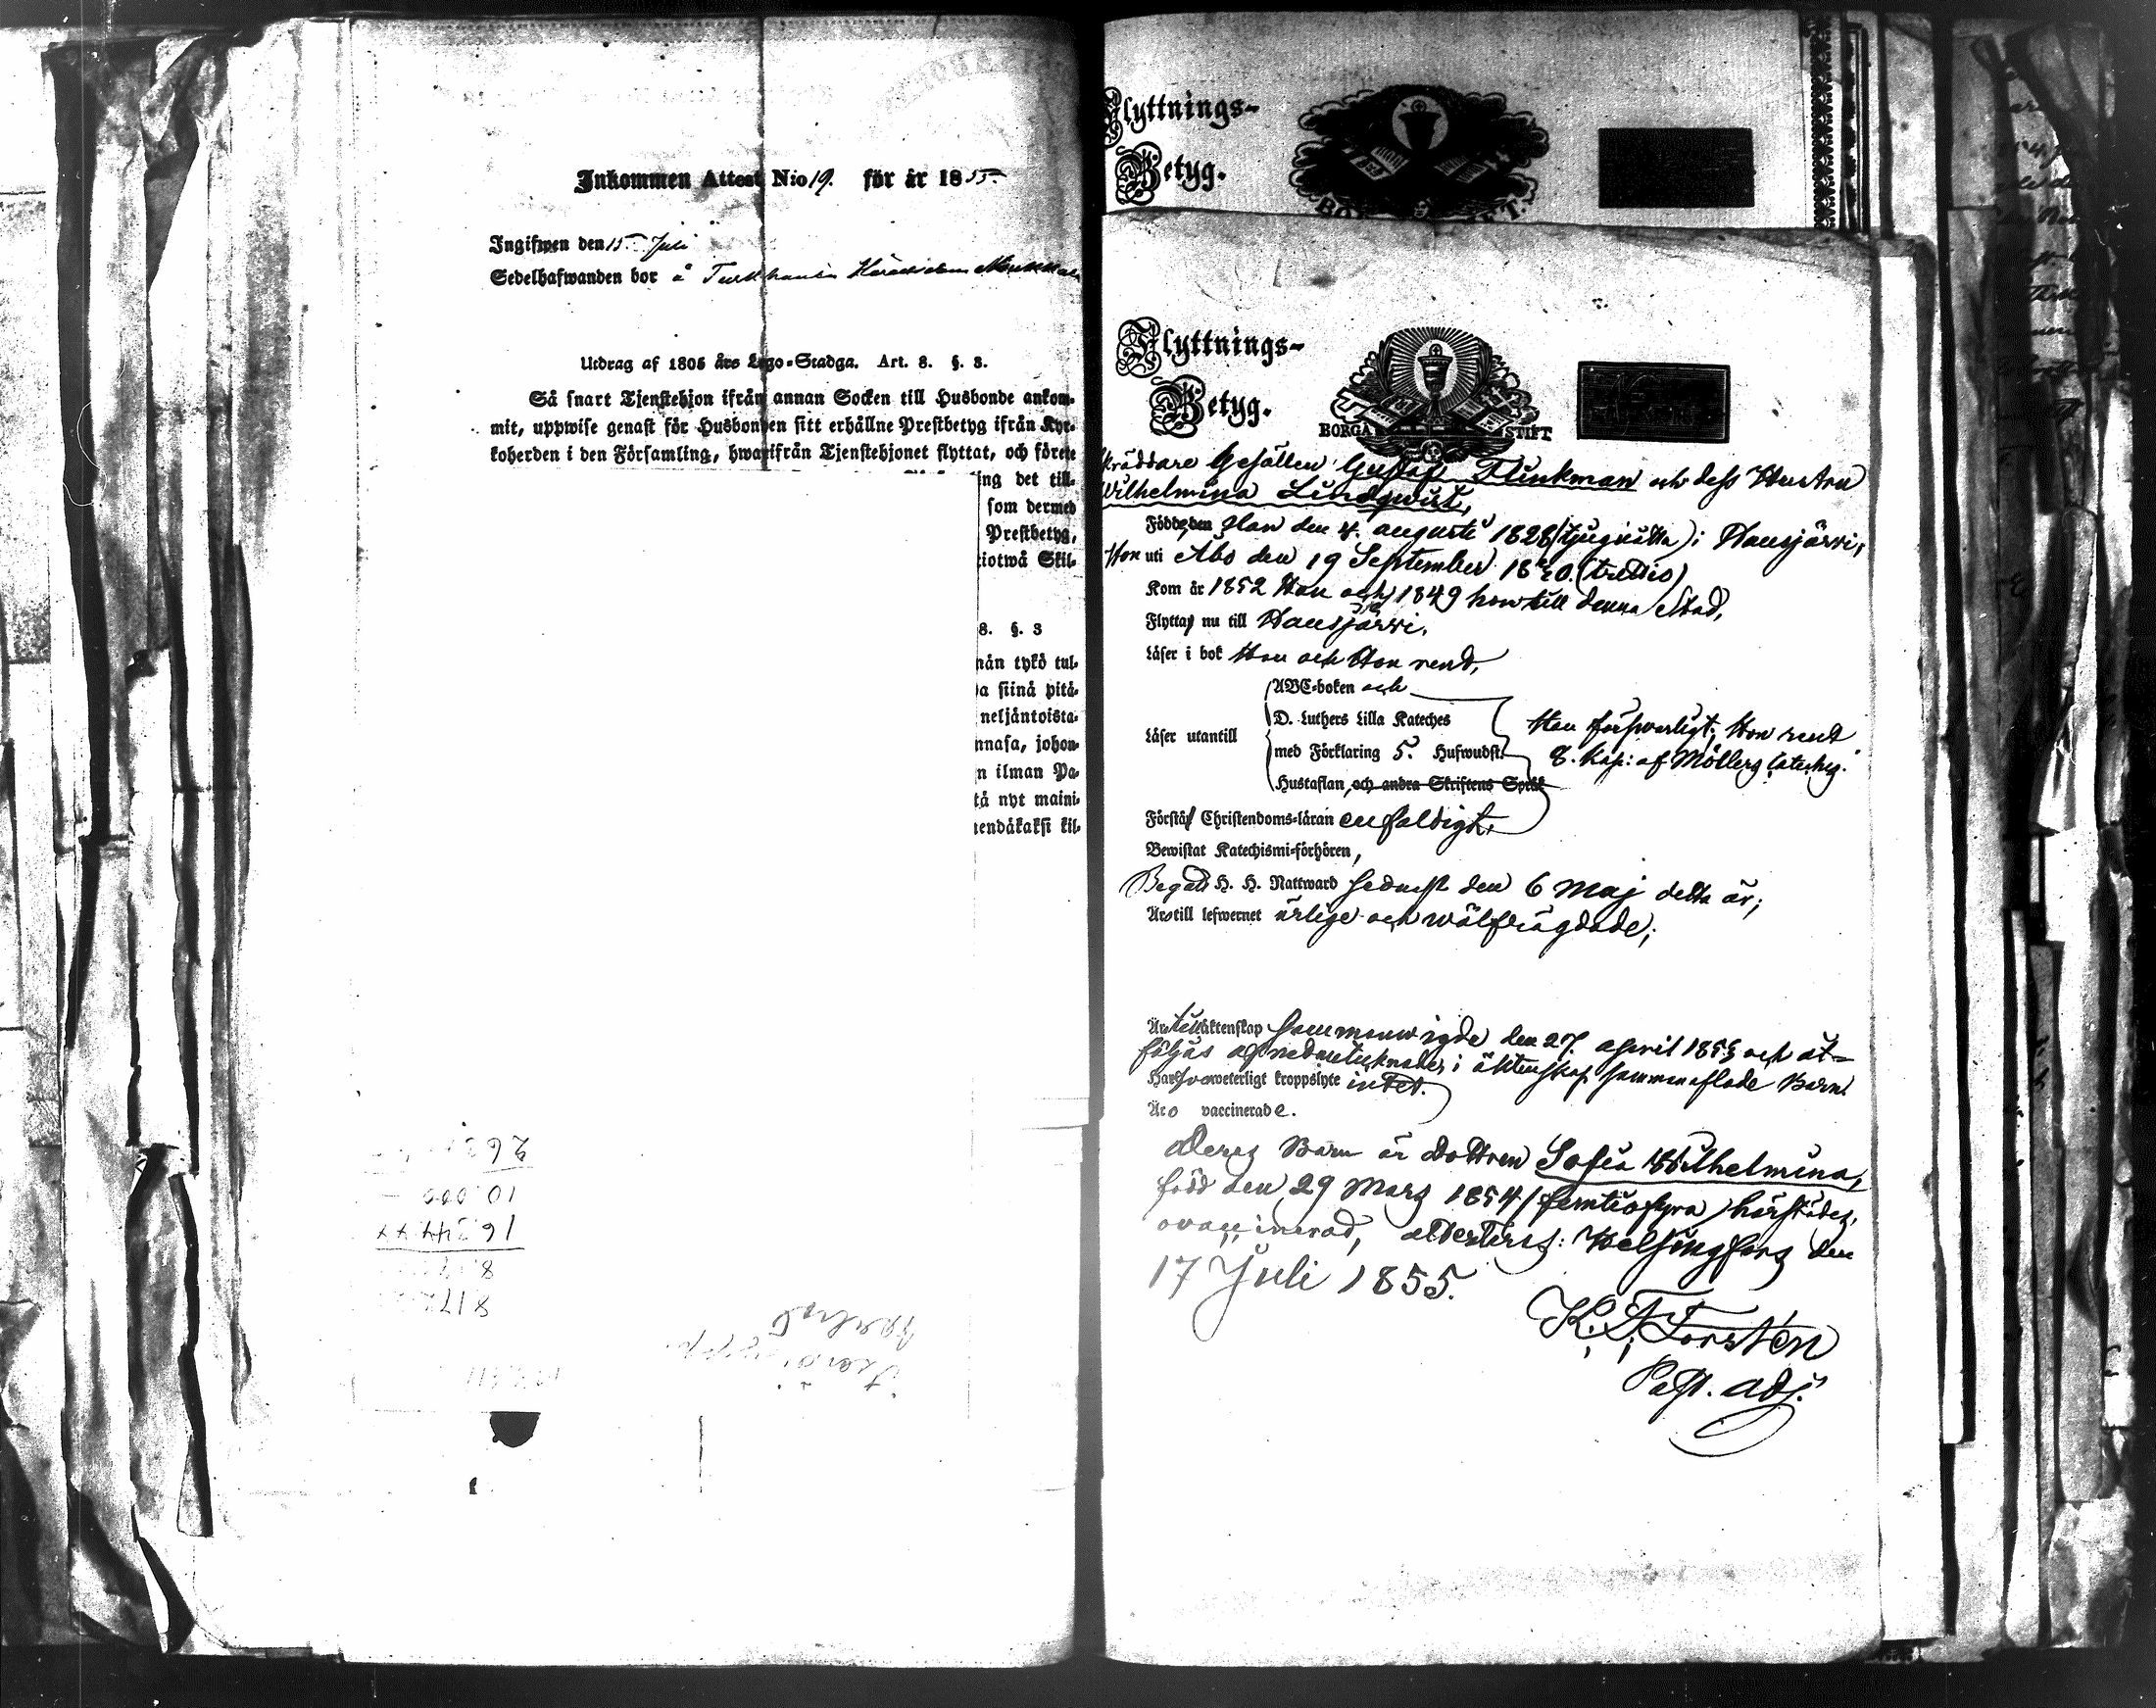 Inkommen Attest N:o 19. för år 1855
Ingifwen den 15 Juli
Sedelhafwanden bor å
Utdrag af 1805 års Lego-Stadga. Art. 8. §. 3.
Så snart Tjenstehjon ifrån annan Socken till Husbonde ankom-
mit, uppwise genast för Husbonden sitt erhållne Prestbetyg ifrån Kyr-
koherden i den Församling, hwarifrån Tjenstehjonet flyttat, och förete
ing det till-
som dermed
Prestbetyg,
tiotwå Skil-
8. §. 3
nän tykö tul-
a siinä pitä-
neljäntoista-
nnasa, johon-
n ilman Pa-
tä nyt maini-
endäkaksi kil-
Flyttnings-
Betyg.
Flyttnings-
Betyg.
BORGÅ STIFT
Skräddare Gesällen Gustaf Flinkman och dess Hustru
Wilhelmina Lindqwist,
Födde, den Han den 4. augusti 1828 (tjuguåtta) i Hausjärvi,
Hon uti Åbo den 19 September 1830. (trettio)
Kom år 1852 Han och 1849 hon till denna Stad,
Flytta nu till Hausjärvi.
Läser i bok Han och Hon rent,
ABC-boken och
D. Luthers Lilla Kateches
Läser utantill
med Förklaring 5. Hufwudst.
Hustaflan, och andra Skriftens Språk
Han förswarligt; Hon rent
8. Kap: af Möllers Cateches.
Förstå Christendoms-läran enfaldigt,
Bewistat Katechismi-förhören,
Begått H. H. Nattward sednast den 6 Maj detta år;
Äro till lefwernet ärlige och wälfrägdade;
Äro till äktenskap sammanwigde den 27. april 1853 och åt-
följas af nedantecknade, i äktenskap sammanaflade Barn
Hafwa weterligt kroppslyte intet.
Äro vaccinerade.
Deras Barn är dottren Sofia Wilhelmina,
född den 29 Mars 1854 (femtiofyra) härstädes,
ovaccinerad, attesteras: Helsingfors den
17 Juli 1855.
K. F. Forstén
Past. adj.